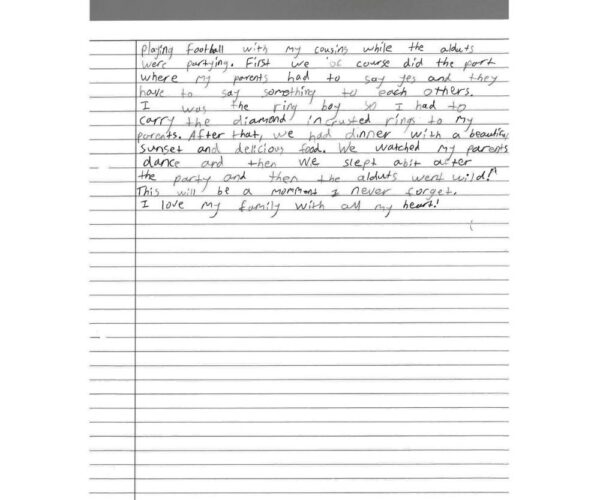 playing football with my cousins while the alduts
were partying. First we of course did the part
where my parents had to say yes and they
have to say something to each others.
I was the ring boy so I had to
carry the diamond incrusted rings to my
parents. After that, we had dinner with a beautiful
sunset and delicious food. We watched my parents
dance and then we slept abit after
the party and then the alduts went wild!"
This will be a momment I never forget.
I love my family with all my heart!